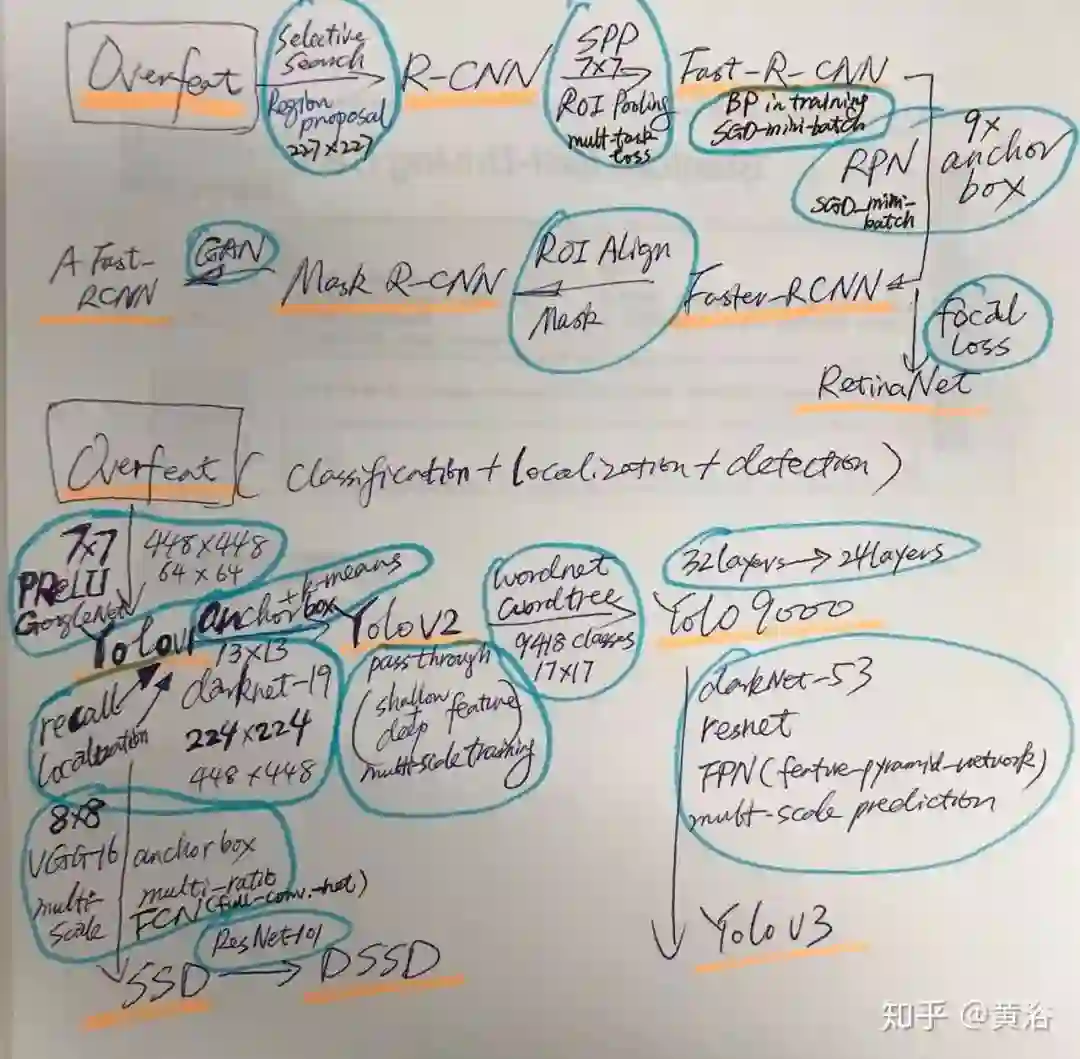 Overfeat
Selective
Search
Region
proposal
227×227
R-CNN
SPP
7×7
ROI Pooling
mult-task
loss
Fast-R-CNN
BP in training
SGD-mini-batch
RPN
SGD_mini-
batch
9x
anchor
box
Faster-RCNN
ROI Align
Mask
Mask R-CNN
GAN
A Fast-
RCNN
focal
loss
RetinaNet
Overfeat ( classification+localization+detection)
7×7
PReLU
GoogleNet
448×448
64×64
Yolov1
anchor box
+k-means
13×13
Yolov2
wordnet
wordtree
9418 classes
17×17
32layers→24layers
Yolo 9000
recall
localization
darknet-19
224×224
448×448
passthrough
(shallow
deep feature)
multi-scale training
darkNet-53
resnet
FPN(feature-pyramid-network)
mult-scale prediction
8×8
VGG-16
multi-
scale
anchor box
multi-ratio
FCN(full-conv.-net)
ResNet-101
SSD → DSSD
Yolov3
知乎 @黄浴